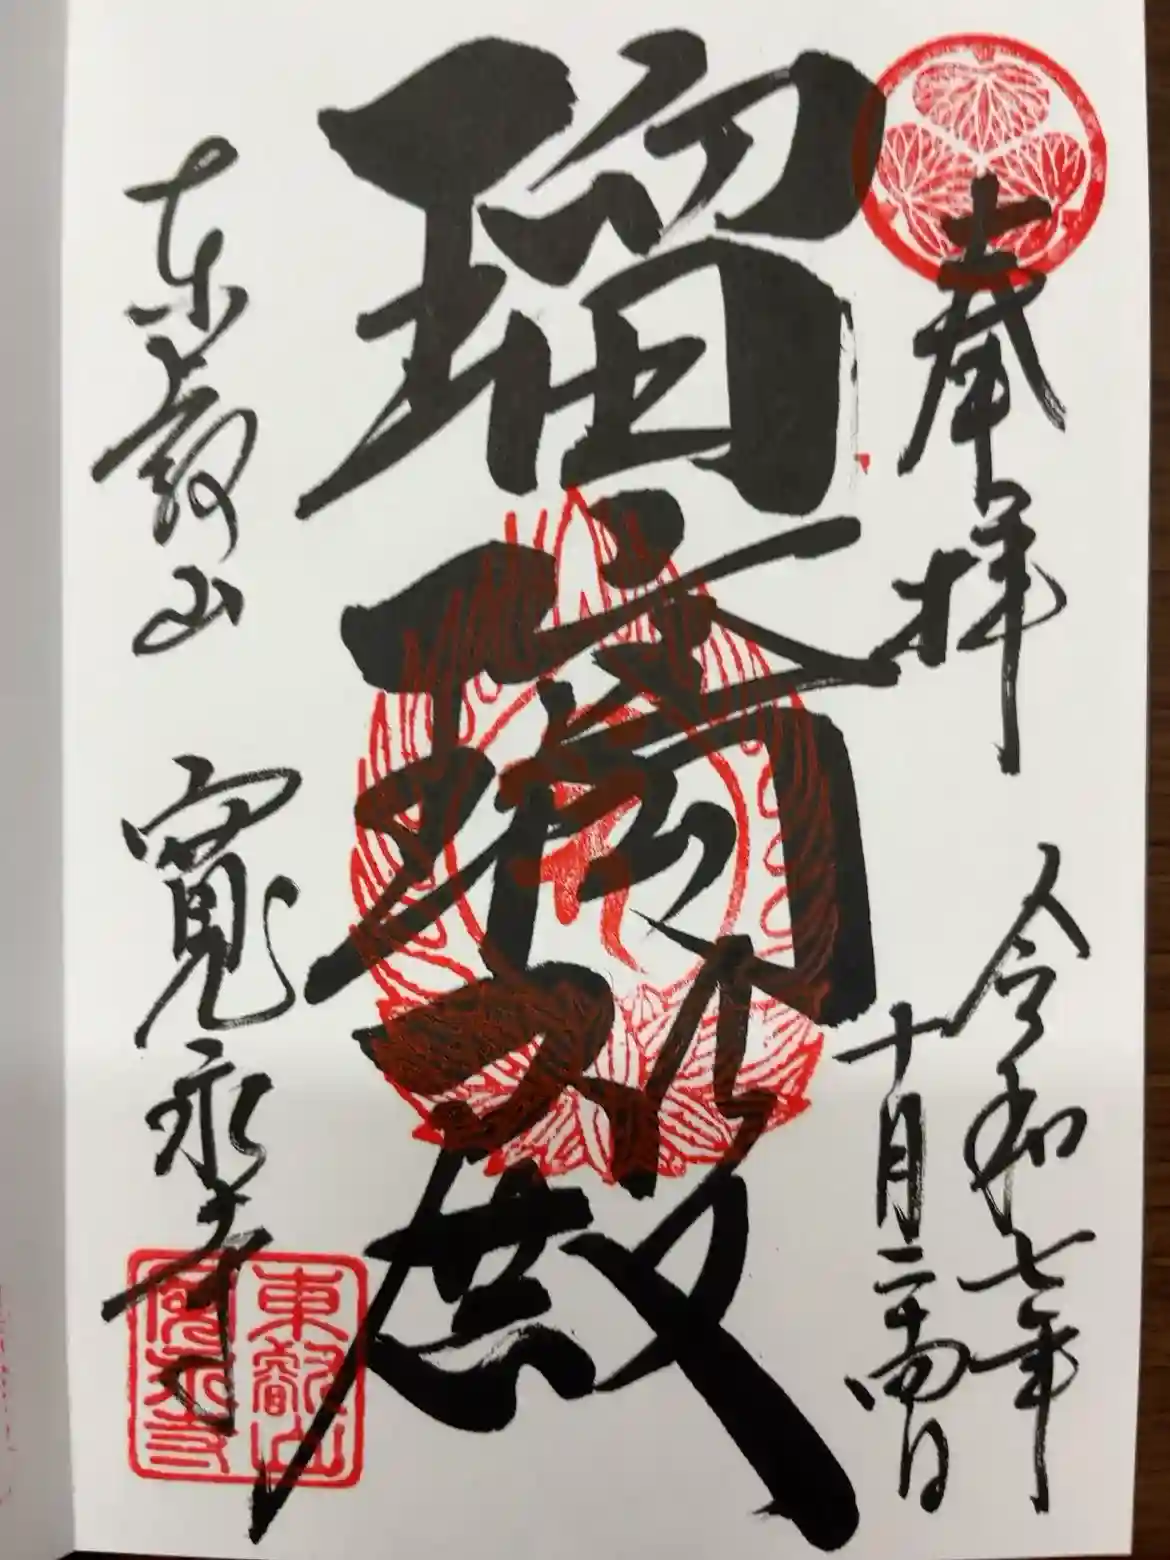 奉拝
令和七年
十月二十四日
瑠璃殿
東叡山 寛永寺
東叡山
寛永寺